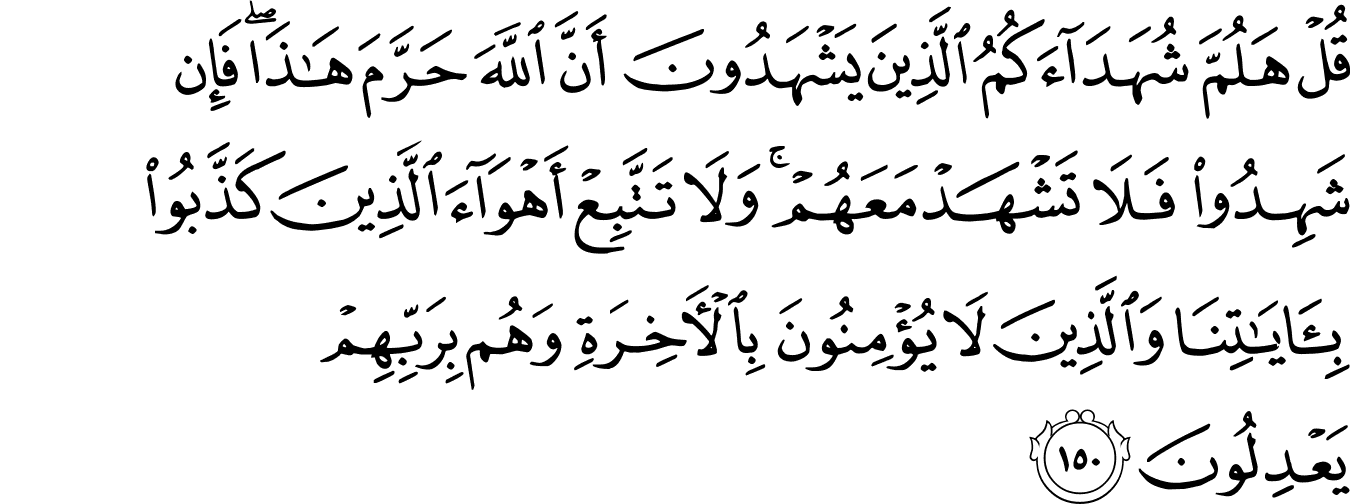 قُلْ هَلُمَّ شُهَدَآءَكُمُ ٱلَّذِينَ يَشْهَدُونَ أَنَّ ٱللَّهَ حَرَّمَ هَـٰذَا ۖ فَإِن
شَهِدُوا۟ فَلَا تَشْهَدْ مَعَهُمْ ۚ وَلَا تَتَّبِعْ أَهْوَآءَ ٱلَّذِينَ كَذَّبُوا۟
بِـَٔايَـٰتِنَا وَٱلَّذِينَ لَا يُؤْمِنُونَ بِٱلْـَٔاخِرَةِ وَهُم بِرَبِّهِمْ
يَعْدِلُونَ ١٥٠